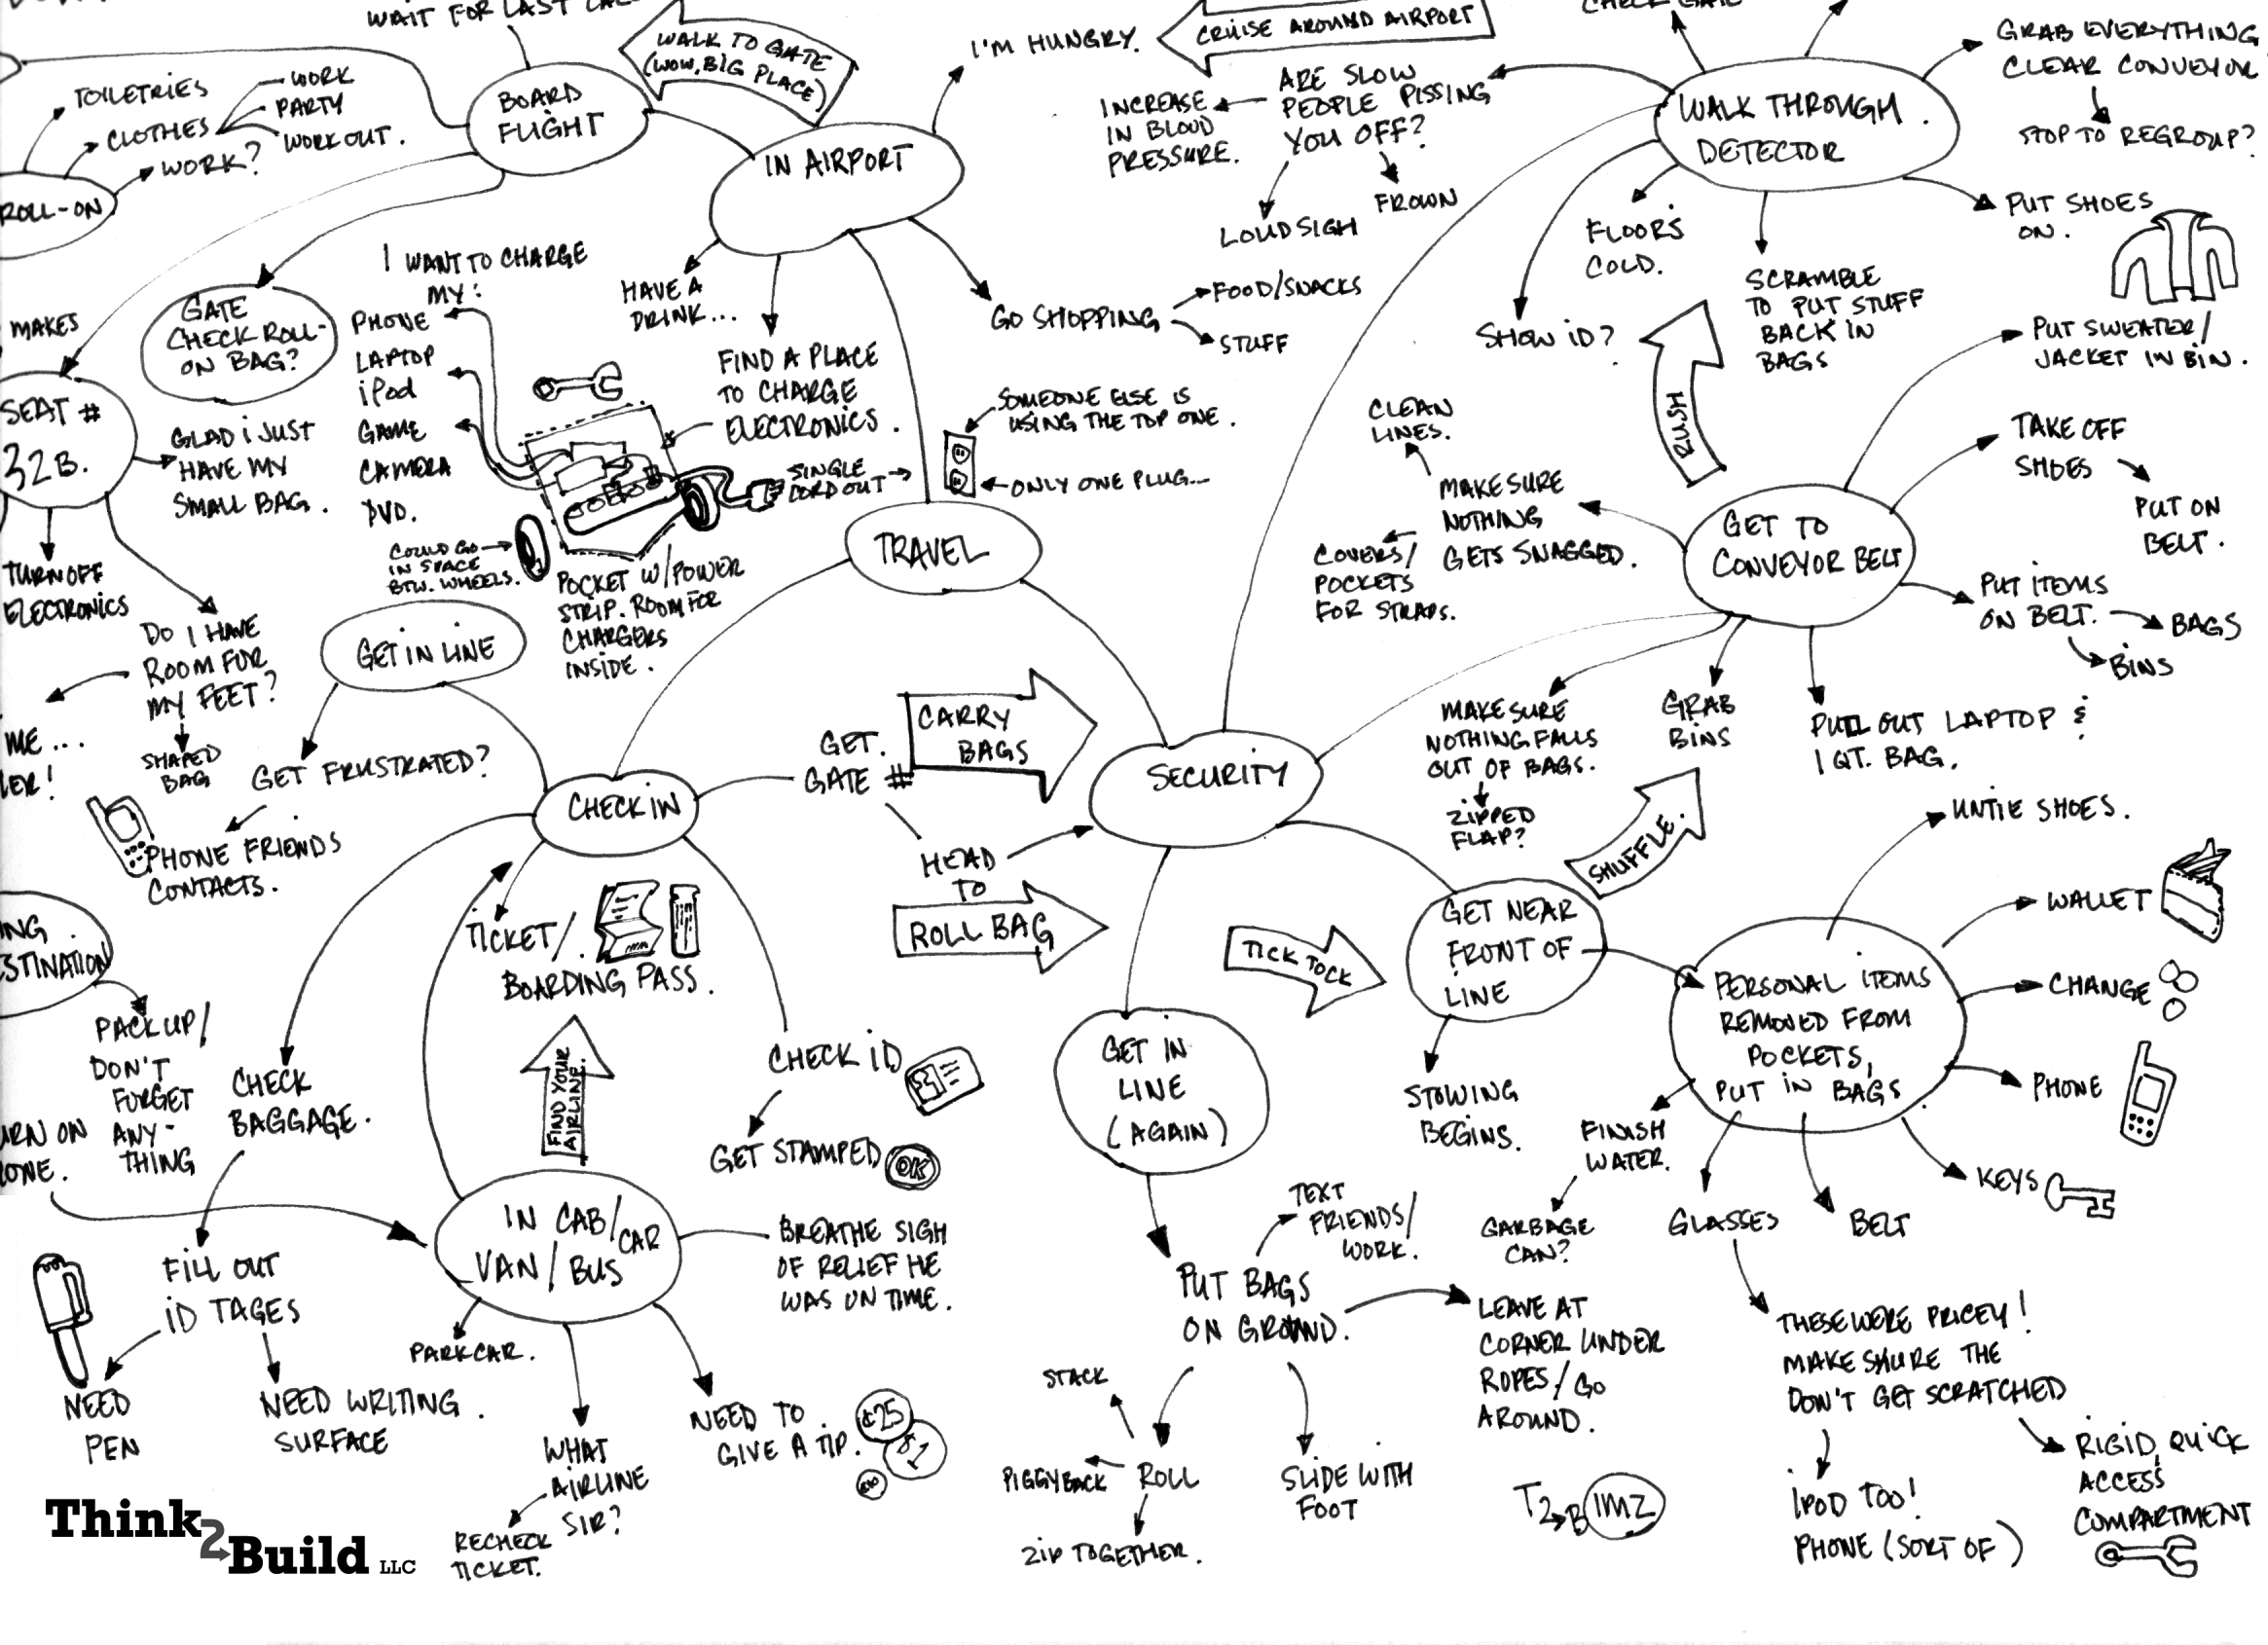 WAIT FOR LAST
WALK TO GATE
(WOW, BIG PLACE)
I'M HUNGRY.
CRUISE AROUND AIRPORT
GRAB EVERYTHING
CLEAR CONVEYOR
STOP TO REGROUP?
TOILETRIES
CLOTHES
WORK
PARTY
WORK OUT.
WORK?
ROLL-ON
BOARD
FLIGHT
IN AIRPORT
ARE SLOW
PEOPLE PISSING
YOU OFF?
INCREASE
IN BLOUD
PRESSURE.
LOUD SIGH
FROWN
WALK THROUGH
DETECTOR
FLOORS
COLD.
SHOW ID?
SCRAMBLE
TO PUT STUFF
BACK IN
BAGS
PUT SHOES
ON.
MAKES
GATE
CHECK ROLL-
ON BAG?
I WANT TO CHARGE
MY:
PHONE
LAPTOP
iPod
GAME
CAMERA
DVD.
HAVE A
DRINK...
FIND A PLACE
TO CHARGE
ELECTRONICS.
GO SHOPPING
FOOD/SNACKS
STUFF
SOMEONE ELSE IS
USING THE TOP ONE.
ONLY ONE PLUG...
SINGLE
CORD OUT
COULD GO
IN SPACE
BTW. WHEELS.
POCKET W/POWER
STRIP. ROOM FOR
CHARGERS
INSIDE.
SEAT #
32B.
GLAD I JUST
HAVE MY
SMALL BAG.
TURN OFF
ELECTRONICS
DO I HAVE
ROOM FOR
MY FEET?
SHAPED
BAG
ME...
LER!
RUSH
PUT SWEATER/
JACKET IN BIN.
TAKE OFF
SHOES
PUT ON
BELT.
GET TO
CONVEYOR BELT
CLEAN
LINES.
MAKE SURE
NOTHING
GETS SNAGGED.
COVERS/
POCKETS
FOR STRAPS.
PUT ITEMS
ON BELT.
BAGS
BINS
MAKE SURE
NOTHING FALLS
OUT OF BAGS.
ZIPPED
FLAP?
GRAB
BINS
PULL OUT LAPTOP &
1 QT. BAG.
TRAVEL
GET IN LINE
GET FRUSTRATED?
PHONE FRIENDS
CONTACTS.
CHECK IN
GET
GATE #
CARRY
BAGS
HEAD
TO
ROLL BAG
SECURITY
TICK TOCK
SHUFFLE.
GET NEAR
FRONT OF
LINE
STOWING
BEGINS.
PERSONAL ITEMS
REMOVED FROM
POCKETS,
PUT IN BAGS
UNTIE SHOES.
WALLET
CHANGE
PHONE
KEYS
BELT
GLASSES
FINISH
WATER.
GARBAGE
CAN?
THESE WERE PRICEY!
MAKE SHURE THE
DON'T GET SCRATCHED
IPOD TOO!
PHONE (SORT OF)
RIGID, QUICK
ACCESS
COMPARTMENT
ING
ESTINATION
PACK UP/
DON'T
FORGET
ANY-
THING
URN ON
ONE.
TICKET/
BOARDING PASS.
CHECK
BAGGAGE.
FIND YOUR
AIRLINE.
CHECK ID
GET STAMPED
OK
FILL OUT
ID TAGES
NEED
PEN
NEED WRITING
SURFACE
IN CAB/
CAR
VAN/BUS
BREATHE SIGH
OF RELIEF HE
WAS ON TIME.
PARK CAR.
WHAT
AIRLINE
SIR?
RECHECK
TICKET.
NEED TO
GIVE A TIP.
¢25
$1
GET IN
LINE
(AGAIN)
PUT BAGS
ON GROUND.
TEXT
FRIENDS/
WORK.
LEAVE AT
CORNER UNDER
ROPES/GO
AROUND.
STACK
PIGGYBACK
ROLL
ZIP TOGETHER.
SLIDE WITH
FOOT
T2B 1MZ
Think
2
Build LLC